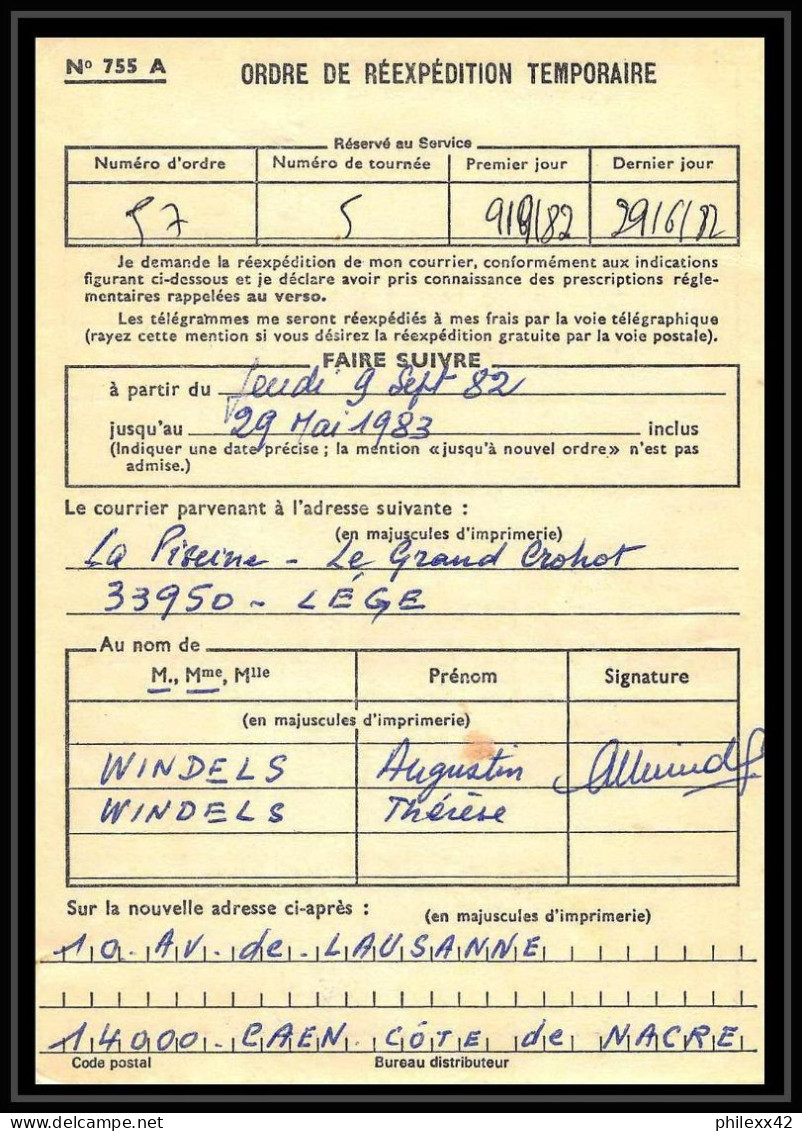 Nº 755 A ORDRE DE RÉEXPÉDITION TEMPORAIRE
Réservé au Service
Numéro d'ordre Numéro de tournée Premier jour Dernier jour
57 5 9/9/82 29/6/82
Je demande la réexpédition de mon courrier, conformément aux indications
figurant ci-dessous et je déclare avoir pris connaissance des prescriptions régle-
mentaires rappelées au verso.
Les télégrammes me seront réexpédiés à mes frais par la voie télégraphique
(rayez cette mention si vous désirez la réexpédition gratuite par la voie postale).
FAIRE SUIVRE
à partir du Jeudi 9 Sept 82
jusqu'au 29 Mai 1983 inclus
(Indiquer une date précise ; la mention «jusqu'à nouvel ordre» n'est pas
admise.)
Le courrier parvenant à l'adresse suivante :
(en majuscules d'imprimerie)
La Piscine - Le Grand Crohot
33950 - LÉGE
Au nom de
M., Mme, Mlle Prénom Signature
(en majuscules d'imprimerie)
WINDELS Augustin
WINDELS Thérèse
Sur la nouvelle adresse ci-après : (en majuscules d'imprimerie)
10. AV. de. LAUSANNE
14000. CAEN. CÔTE de NACRE
Code postal Bureau distributeur
philexx42